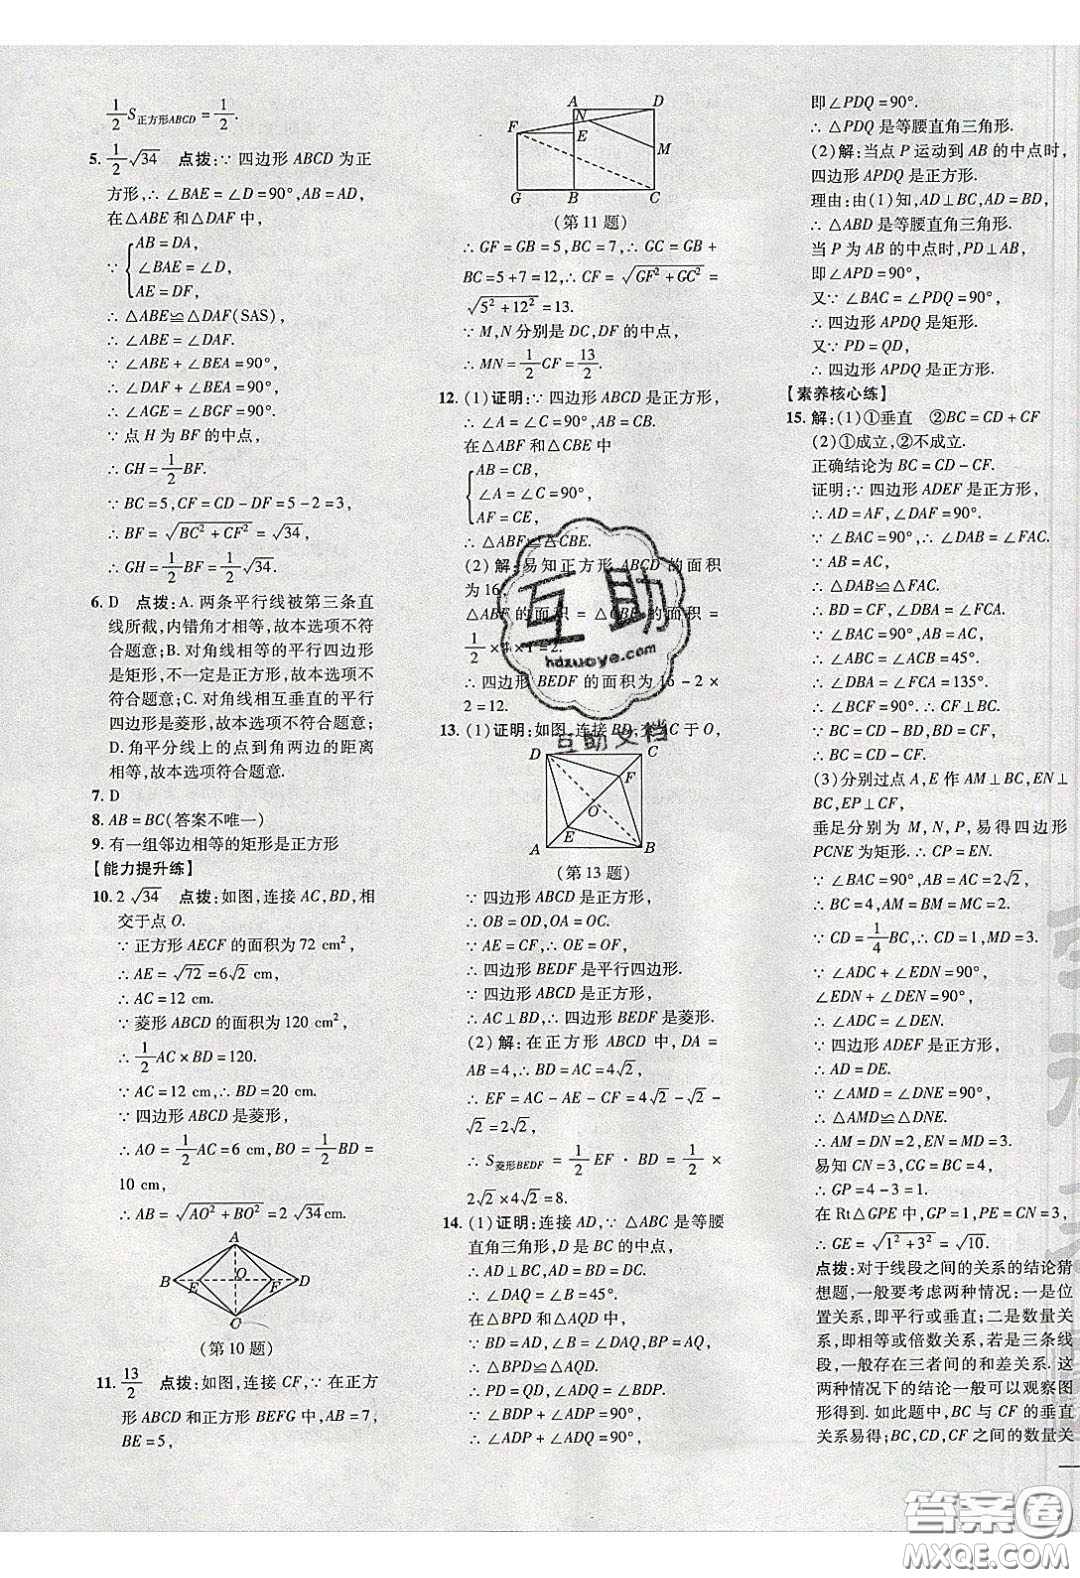 1/2 S正方形ABCD = 1/2.
5. 1/2 √34　点拨:∵ 四边形 ABCD 为正
方形,∴ ∠BAE = ∠D = 90°,AB = AD,
在△ABE 和△DAF 中,
∵ { AB = DA,
∠BAE = ∠D,
AE = DF,
∴ △ABE≌△DAF(SAS),
∴ ∠ABE = ∠DAF.
∵ ∠ABE + ∠BEA = 90°,
∴ ∠DAF + ∠BEA = 90°,
∴ ∠AGE = ∠BGF = 90°.
∵ 点 H 为 BF 的中点,
∴ GH = 1/2 BF.
∵ BC = 5,CF = CD - DF = 5 - 2 = 3,
∴ BF = √(BC² + CF²) = √34,
∴ GH = 1/2 BF = 1/2 √34.
6. D　点拨:A. 两条平行线被第三条直
线所截,内错角才相等,故本选项不符
合题意;B. 对角线相等的平行四边形
是矩形,不一定是正方形,故本选项不
符合题意;C. 对角线相互垂直的平行
四边形是菱形,故本选项不符合题意;
D. 角平分线上的点到角两边的距离
相等,故本选项符合题意.
7. D
8. AB = BC(答案不唯一)
9. 有一组邻边相等的矩形是正方形
【能力提升练】
10. 2 √34　点拨:如图,连接 AC,BD,相
交于点 O.
∵ 正方形 AECF 的面积为 72 cm²,
∴ AE = √72 = 6√2 cm,
∴ AC = 12 cm.
∵ 菱形 ABCD 的面积为 120 cm²,
∴ 1/2 AC × BD = 120.
∵ AC = 12 cm,∴ BD = 20 cm.
∵ 四边形 ABCD 是菱形,
∴ AO = 1/2 AC = 6 cm,BO = 1/2 BD =
10 cm,
∴ AB = √(AO² + BO²) = 2 √34 cm.
A
B E O F D
O
(第 10 题)
11. 13/2　点拨:如图,连接 CF,∵ 在正方
形 ABCD 和正方形 BEFG 中,AB = 7,
BE = 5,
A D
N
F E
M
G B C
(第 11 题)
∴ GF = GB = 5,BC = 7,∴ GC = GB +
BC = 5 + 7 = 12,∴ CF = √(GF² + GC²) =
√(5² + 12²) = 13.
∵ M,N 分别是 DC,DF 的中点,
∴ MN = 1/2 CF = 13/2.
12. (1)证明:∵ 四边形 ABCD 是正方形,
∴ ∠A = ∠C = 90°,AB = CB.
在△ABF 和△CBE 中
{ AB = CB,
∠A = ∠C = 90°,
AF = CE,
∴ △ABF≌△CBE.
(2)解:易知正方形 ABCD 的面积
为 16,
△ABF 的面积 = △CBE 的面积 =
1/2 × 4 × 1 = 2.
∴ 四边形 BEDF 的面积为 16 - 2 ×
2 = 12.
13. (1)证明:如图,连接 BD,交 AC 于 O,
D C
F
O
E
A B
(第 13 题)
∵ 四边形 ABCD 是正方形,
∴ OB = OD,OA = OC.
∵ AE = CF,∴ OE = OF,
∴ 四边形 BEDF 是平行四边形.
∵ 四边形 ABCD 是正方形,
∴ AC⊥BD,∴ 四边形 BEDF 是菱形.
(2)解:在正方形 ABCD 中,DA =
AB = 4,∴ BD = AC = 4√2.
∴ EF = AC - AE - CF = 4√2 - √2 -
√2 = 2√2,
∴ S菱形BEDF = 1/2 EF · BD = 1/2 ×
2√2 × 4√2 = 8.
14. (1)证明:连接 AD,∵ △ABC 是等腰
直角三角形,D 是 BC 的中点,
∴ AD⊥BC,AD = BD = DC,
∴ ∠DAQ = ∠B = 45°.
在△BPD 和△AQD 中,
∵ BD = AD,∠B = ∠DAQ,BP = AQ,
∴ △BPD≌△AQD,
∴ PD = QD,∠ADQ = ∠BDP.
∵ ∠BDP + ∠ADP = 90°,
∴ ∠ADP + ∠ADQ = 90°,
即∠PDQ = 90°.
∴ △PDQ 是等腰直角三角形.
(2)解:当点 P 运动到 AB 的中点时,
四边形 APDQ 是正方形.
理由:由(1)知,AD⊥BC,AD = BD,
∴ △ABD 是等腰直角三角形.
当 P 为 AB 的中点时,PD⊥AB,
即∠APD = 90°,
又∵ ∠BAC = ∠PDQ = 90°,
∴ 四边形 APDQ 是矩形.
又∵ PD = QD,
∴ 四边形 APDQ 是正方形.
【素养核心练】
15. 解:(1)①垂直　②BC = CD + CF
(2)①成立,②不成立.
正确结论为 BC = CD - CF.
证明:∵ 四边形 ADEF 是正方形,
∴ AD = AF,∠DAF = 90°.
∵ ∠BAC = 90°,∴ ∠DAB = ∠FAC.
∵ AB = AC,
∴ △DAB≌△FAC,
∴ BD = CF,∠DBA = ∠FCA.
∵ ∠BAC = 90°,AB = AC,
∴ ∠ABC = ∠ACB = 45°.
∴ ∠DBA = ∠FCA = 135°.
∴ ∠BCF = 90°,∴ BC⊥CF.
∵ BC = CD - BD,
∴ BC = CD - CF.
(3)分别过点 A,E 作 AM⊥BC,EN⊥
BC,EP⊥CF,
垂足分别为 M,N,P,易得四边形
PCNE 为矩形.∴ NE = CP.
∵ ∠BAC = 90°,AB = AC = 2√2,
∴ BC = 4,AM = BM = MC = 2.
∵ CD = 1/4 BC,∴ CD = 1,MD = 3.
∵ ∠ADC + ∠EDN = 90°,
∠EDN + ∠DEN = 90°,
∴ ∠ADC = ∠DEN.
∵ 四边形 ADEF 是正方形,
∴ AD = DE.
∵ ∠AMD = ∠DNE = 90°,
∴ △AMD≌△DNE.
∴ AM = DN = 2,EN = MD = 3.
易知 CN = 3,CG = BC = 4,
∴ GP = 4 - 3 = 1.
在 Rt△GPE 中,GP = 1,PE = CN = 3,
∴ GE = √(1² + 3²) = √10.
点拨:对于线段之间的关系的结论猜
想题,一般要考虑两种情况:一是位
置关系,即平行或垂直;二是数量关
系,即相等或倍数关系,若是三条线
段,一般存在三者间的和差关系. 这
两种情况下的结论一般可以观察图
形得到. 如此题中,BC 与 CF 的垂直
关系易得;BC,CD,CF 之间的数量关
互助
hdzuoye.com
互助文档
答案卷
MXQE.COM